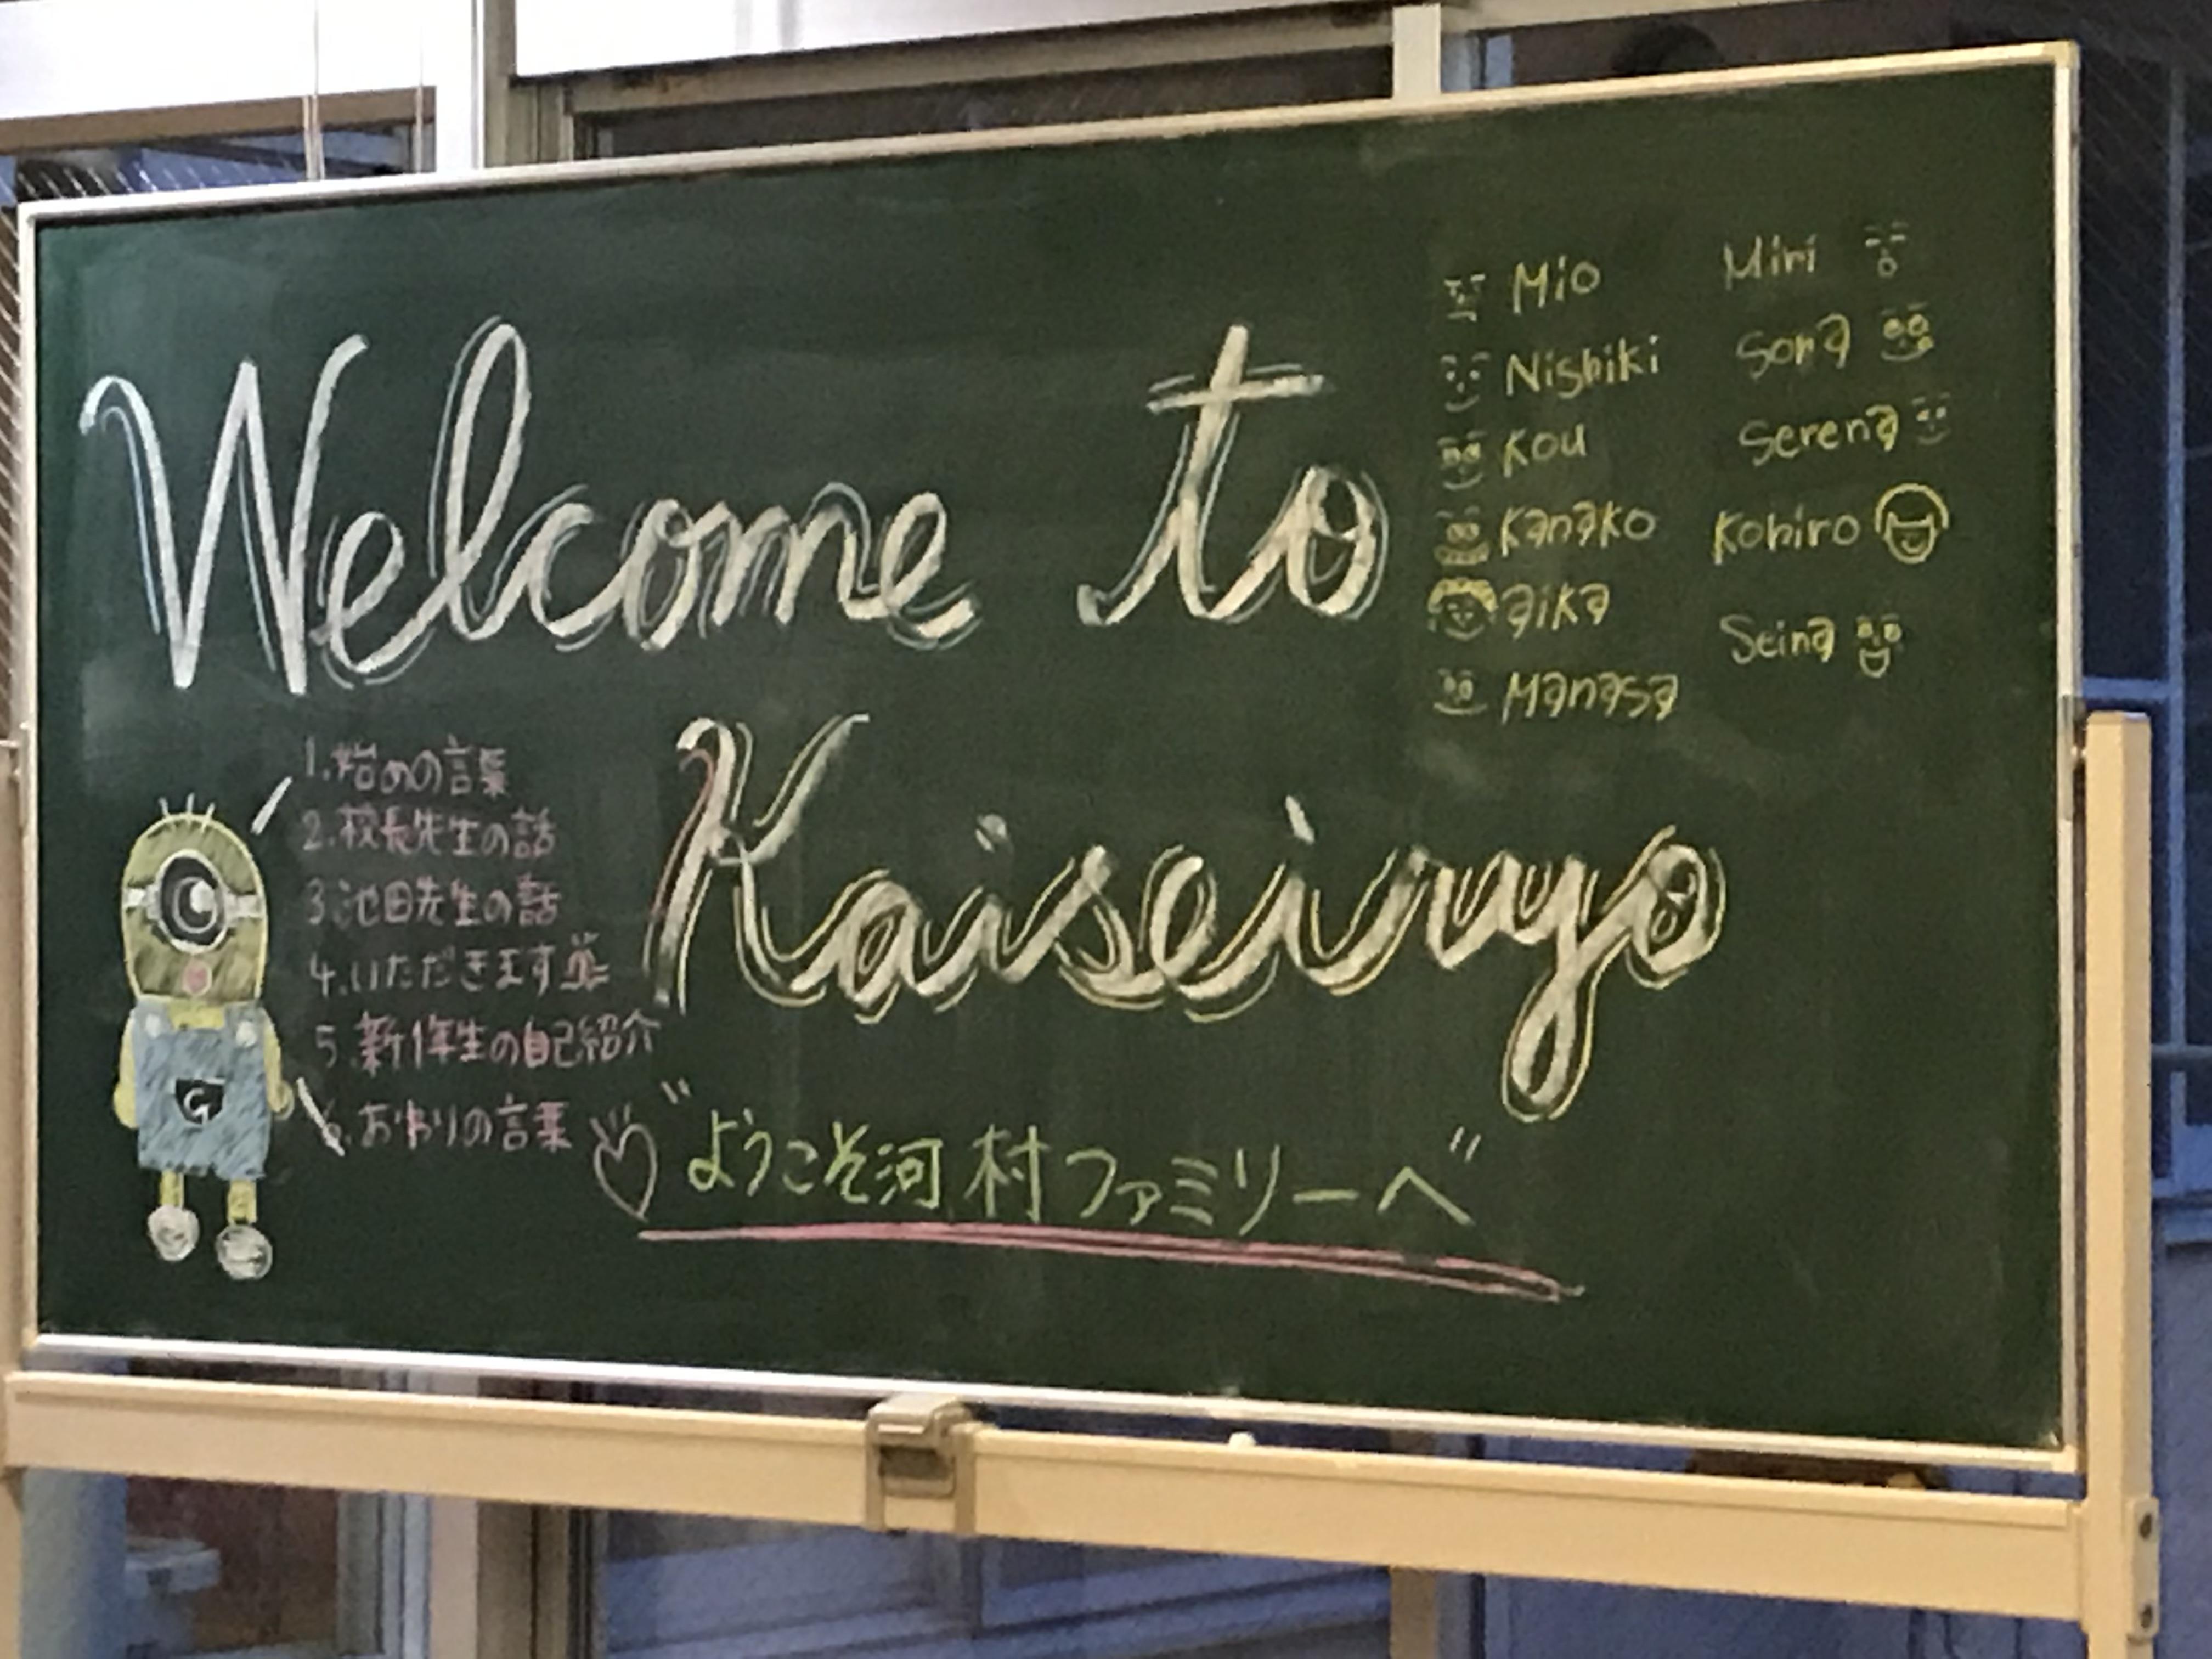 Welcome to
Kaiseiryo
Mio
Nishiki
Kou
Kanako
aika
Manasa
Miri
Sora
Serena
Kohiro
Seina
1.始めの言葉
2.校長先生の話
3.池田先生の話
4.いただきます
5.新1年生の自己紹介
6.おわりの言葉
G
"ようこそ河村ファミリーへ"